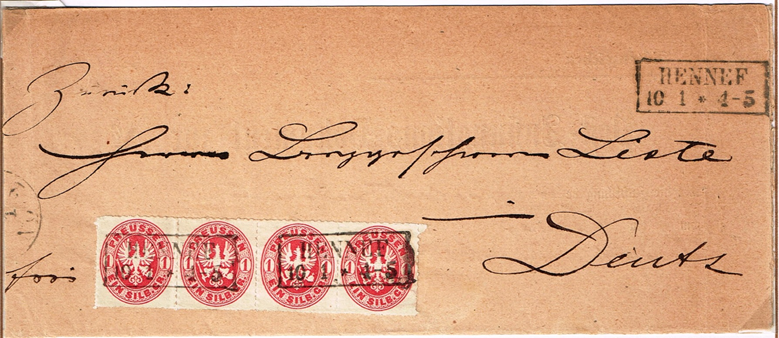 Zurück:
HENNEF
10 1 * 4-5
Herrn Berggeschworn Liste
Deutz
frei
PREUSSEN PREUSSEN PREUSSEN PREUSSEN
1 1 1 1 1 1 1 1
EIN SILB.GR. EIN SILB.GR. EIN SILB.GR. EIN SILB.GR.
HENNEF
10 1 * 4-5